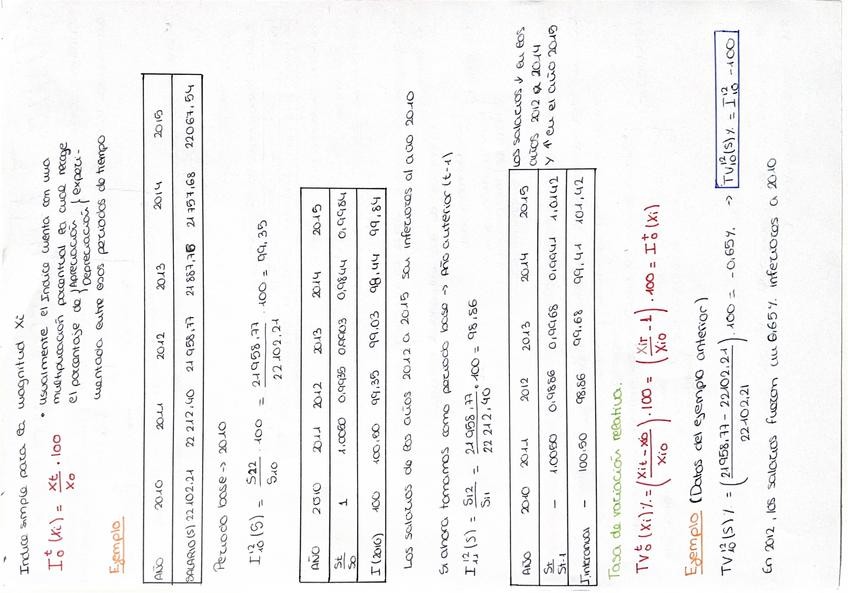 Indice simple para la magnitud Xi
I₀ᵗ (Xi) = Xt / X₀ · 100
• Usualmente el Indice cuenta con una
multiplicación porcentual la cual recoge
el porcentaje de {Apreciación / Depreciación} experi-
mentada entre esos periodos de tiempo
Ejemplo
AÑO 2010 2011 2012 2013 2014 2015
SALARIO(S) 22102.21 22212.40 21958,77 21887,75 21757,68 22067,54
Periodo base → 2010
I₁₀¹² (S) = S22 / S10 · 100 = 21958,77 / 22102,21 · 100 = 99,35
AÑO 2010 2011 2012 2013 2014 2015
St / S0 1 1.0050 0,9935 0,9903 0,9844 0,9984
I (2010) 100 100,50 99,35 99,03 98,44 99,84
Los salarios de los años 2012 a 2015 son inferiores al año 2010
Si ahora tomamos como periodo base → Año anterior (t-1)
I₁₁¹² (S) = S12 / S11 = 21958,77 / 22212,40 · 100 = 98,86
AÑO 2010 2011 2012 2013 2014 2015
St / St-1 - 1.0050 0,9886 0,9968 0,9941 1,0142
I.interanual - 100.50 98,86 99,68 99,41 101,42
Los salarios ↓ en los
años 2012 a 2014
y ↑ en el año 2015
Tasa de variación relativa.
TV₀ᵗ (Xi)% = (Xit - X0 / Xi0) · 100 = (Xit / Xi0 - 1) · 100 = I₀ᵗ (Xi)
Ejemplo (Datos del ejemplo anterior)
TV₁₀¹² (S)% = (21958,77 - 22102.21 / 22102,21) · 100 = -0,65% → TV₁₀¹² (S)% = I₁₀¹² - 100
En 2012, los salarios fueron un 0,65% inferiores a 2010